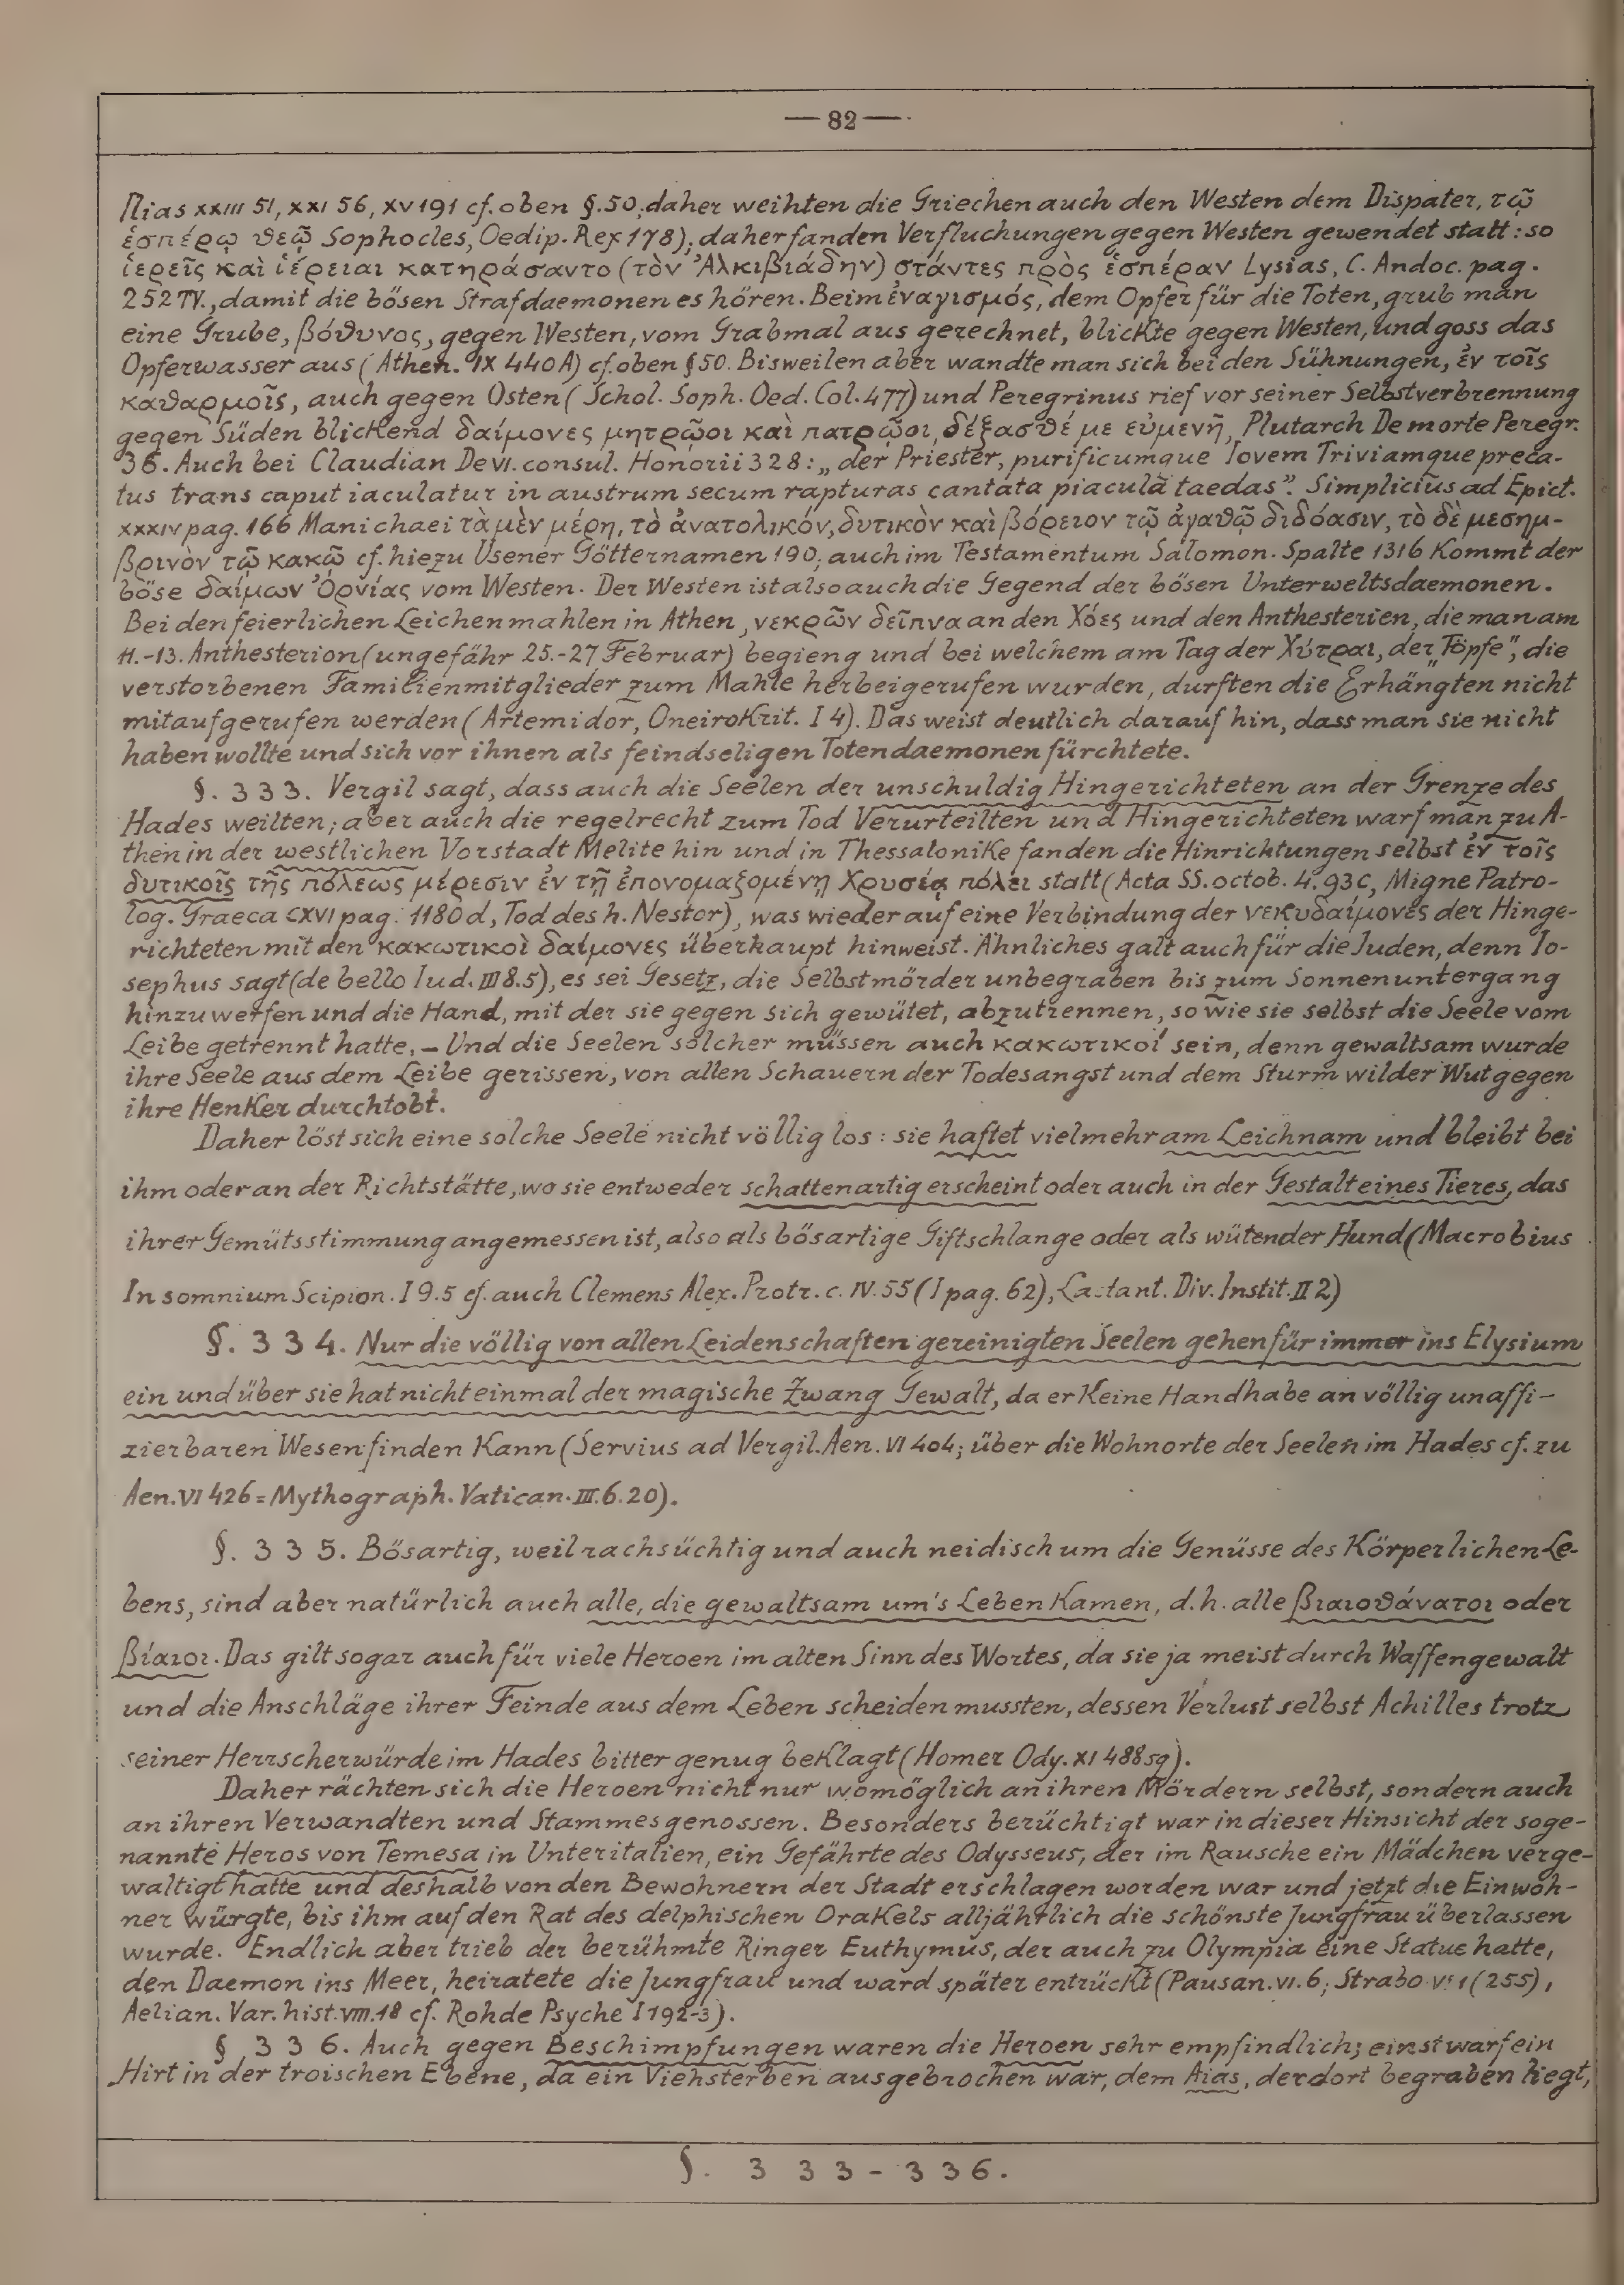 — 82 —
Ilias XXIII 51, XXI 56, XV 191 cf. oben §. 50; daher weihten die Griechen auch den Westen dem Dispater, τῷ
ἑσπέρῳ θεῷ Sophocles, Oedip. Rex 178); daher fanden Verfluchungen gegen Westen gewendet statt: so
ἱερεῖς καὶ ἱέρειαι κατηράσαντο (τὸν Ἀλκιβιάδην) στάντες πρὸς ἑσπέραν Lysias, C. Andoc. pag.
252 TY., damit die bösen Strafdaemonen es hören. Beim ἐναγισμός, dem Opfer für die Toten, grub man
eine Grube, βόθυνος, gegen Westen, vom Grabmal aus gerechnet, blickte gegen Westen, und goss das
Opferwasser aus (Athen. IX 440 A) cf. oben § 50. Bisweilen aber wandte man sich bei den Sühnungen, ἐν τοῖς
καθαρμοῖς, auch gegen Osten (Schol. Soph. Oed. Col. 477) und Peregrinus rief vor seiner Selbstverbrennung
gegen Süden blickend δαίμονες μητρῷοι καὶ πατρῷοι, δέξασθέ με εὐμενῆ, Plutarch De morte Peregr.
36. Auch bei Claudian De VI. consul. Honorii 328: „der Priester, purificumque Iovem Triviamque preca-
tus trans caput iaculatur in austrum secum rapturas cantata piacula taedas”. Simplicius ad Epict.
XXXIV pag. 166 Manichaei τὰ μὲν μέρη, τὸ ἀνατολικόν, δυτικὸν καὶ βόρειον τῷ ἀγαθῷ διδόασιν, τὸ δὲ μεσημ-
βρινὸν τῷ κακῷ cf. hiezu Usener Götternamen 190; auch im Testamentum Salomon. Spalte 1316 kommt der
böse δαίμων Ὀρνίας vom Westen. Der Westen ist also auch die Gegend der bösen Unterweltsdaemonen.
Bei den feierlichen Leichenmahlen in Athen, νεκρῶν δεῖπνα an den Χόες und den Anthesterien, die man am
11.-13. Anthesterion (ungefähr 25.-27 Februar) begieng und bei welchem am Tag der Χύτραι, der „Töpfe”, die
verstorbenen Familienmitglieder zum Mahle herbeigerufen wurden, durften die Erhängten nicht
mitaufgerufen werden (Artemidor, Oneirokrit. I 4). Das weist deutlich darauf hin, dass man sie nicht
haben wollte und sich vor ihnen als feindseligen Totendaemonen fürchtete.
§. 333. Vergil sagt, dass auch die Seelen der unschuldig Hingerichteten an der Grenze des
Hades weilten; aber auch die regelrecht zum Tod Verurteilten und Hingerichteten warf man zu A-
then in der westlichen Vorstadt Melite hin und in Thessalonike fanden die Hinrichtungen selbst ἐν τοῖς
δυτικοῖς τῆς πόλεως μέρεσιν ἐν τῇ ἐπονομαζομένῃ Χρυσέᾳ πόλει statt (Acta SS. octob. 4. 93 C, Migne Patro-
log. Graeca CXVI pag. 1180 d, Tod des h. Nestor), was wieder auf eine Verbindung der νεκυδαίμονες der Hinge-
richteten mit den κακωτικοὶ δαίμονες überhaupt hinweist. Ähnliches galt auch für die Juden, denn Io-
sephus sagt (de bello Iud. III 8.5), es sei Gesetz, die Selbstmörder unbegraben bis zum Sonnenuntergang
hinzuwerfen und die Hand, mit der sie gegen sich gewütet, abzutrennen, sowie sie selbst die Seele vom
Leibe getrennt hatte. – Und die Seelen solcher müssen auch κακωτικοί sein, denn gewaltsam wurde
ihre Seele aus dem Leibe gerissen, von allen Schauern der Todesangst und dem Sturm wilder Wut gegen
ihre Henker durchtobt.
Daher löst sich eine solche Seele nicht völlig los: sie haftet vielmehr am Leichnam und bleibt bei
ihm oder an der Richtstätte, wo sie entweder schattenartig erscheint oder auch in der Gestalt eines Tieres, das
ihrer Gemütsstimmung angemessen ist, also als bösartige Giftschlange oder als wütender Hund (Macrobius
In somnium Scipion. I 9.5 cf. auch Clemens Alex. Protr. c. IV. 55 (I pag. 62), Lactant. Div. Instit. II 2)
§. 334. Nur die völlig von allen Leidenschaften gereinigten Seelen gehen für immer ins Elysium
ein und über sie hat nicht einmal der magische Zwang Gewalt, da er keine Handhabe an völlig unaffi-
zierbaren Wesen finden kann (Servius ad Vergil. Aen. VI 404; über die Wohnorte der Seelen im Hades cf. zu
Aen. VI 426 = Mythograph. Vatican. III. 6. 20).
§. 335. Bösartig, weil rachsüchtig und auch neidisch um die Genüsse des körperlichen Le-
bens, sind aber natürlich auch alle, die gewaltsam um's Leben kamen, d. h. alle βιαιοθάνατοι oder
βίαιοι. Das gilt sogar auch für viele Heroen im alten Sinn des Wortes, da sie ja meist durch Waffengewalt
und die Anschläge ihrer Feinde aus dem Leben scheiden mussten, dessen Verlust selbst Achilles trotz
seiner Herrscherwürde im Hades bitter genug beklagt (Homer Ody. XI 488 sq).
Daher rächten sich die Heroen nicht nur womöglich an ihren Mördern selbst, sondern auch
an ihren Verwandten und Stammesgenossen. Besonders berüchtigt war in dieser Hinsicht der soge-
nannte Heros von Temesa in Unteritalien, ein Gefährte des Odysseus, der im Rausche ein Mädchen verge-
waltigt hatte und deshalb von den Bewohnern der Stadt erschlagen worden war und jetzt die Einwoh-
ner würgte, bis ihm auf den Rat des delphischen Orakels alljährlich die schönste Jungfrau überlassen
wurde. Endlich aber trieb der berühmte Ringer Euthymus, der auch zu Olympia eine Statue hatte,
den Daemon ins Meer, heiratete die Jungfrau und ward später entrückt (Pausan. VI. 6; Strabo VI 1 (255),
Aelian. Var. hist. VIII. 18 cf. Rohde Psyche I 192-3).
§ 336. Auch gegen Beschimpfungen waren die Heroen sehr empfindlich; einst warf ein
Hirt in der troischen Ebene, da ein Viehsterben ausgebrochen war, dem Aias, der dort begraben liegt,
§. 333-336.